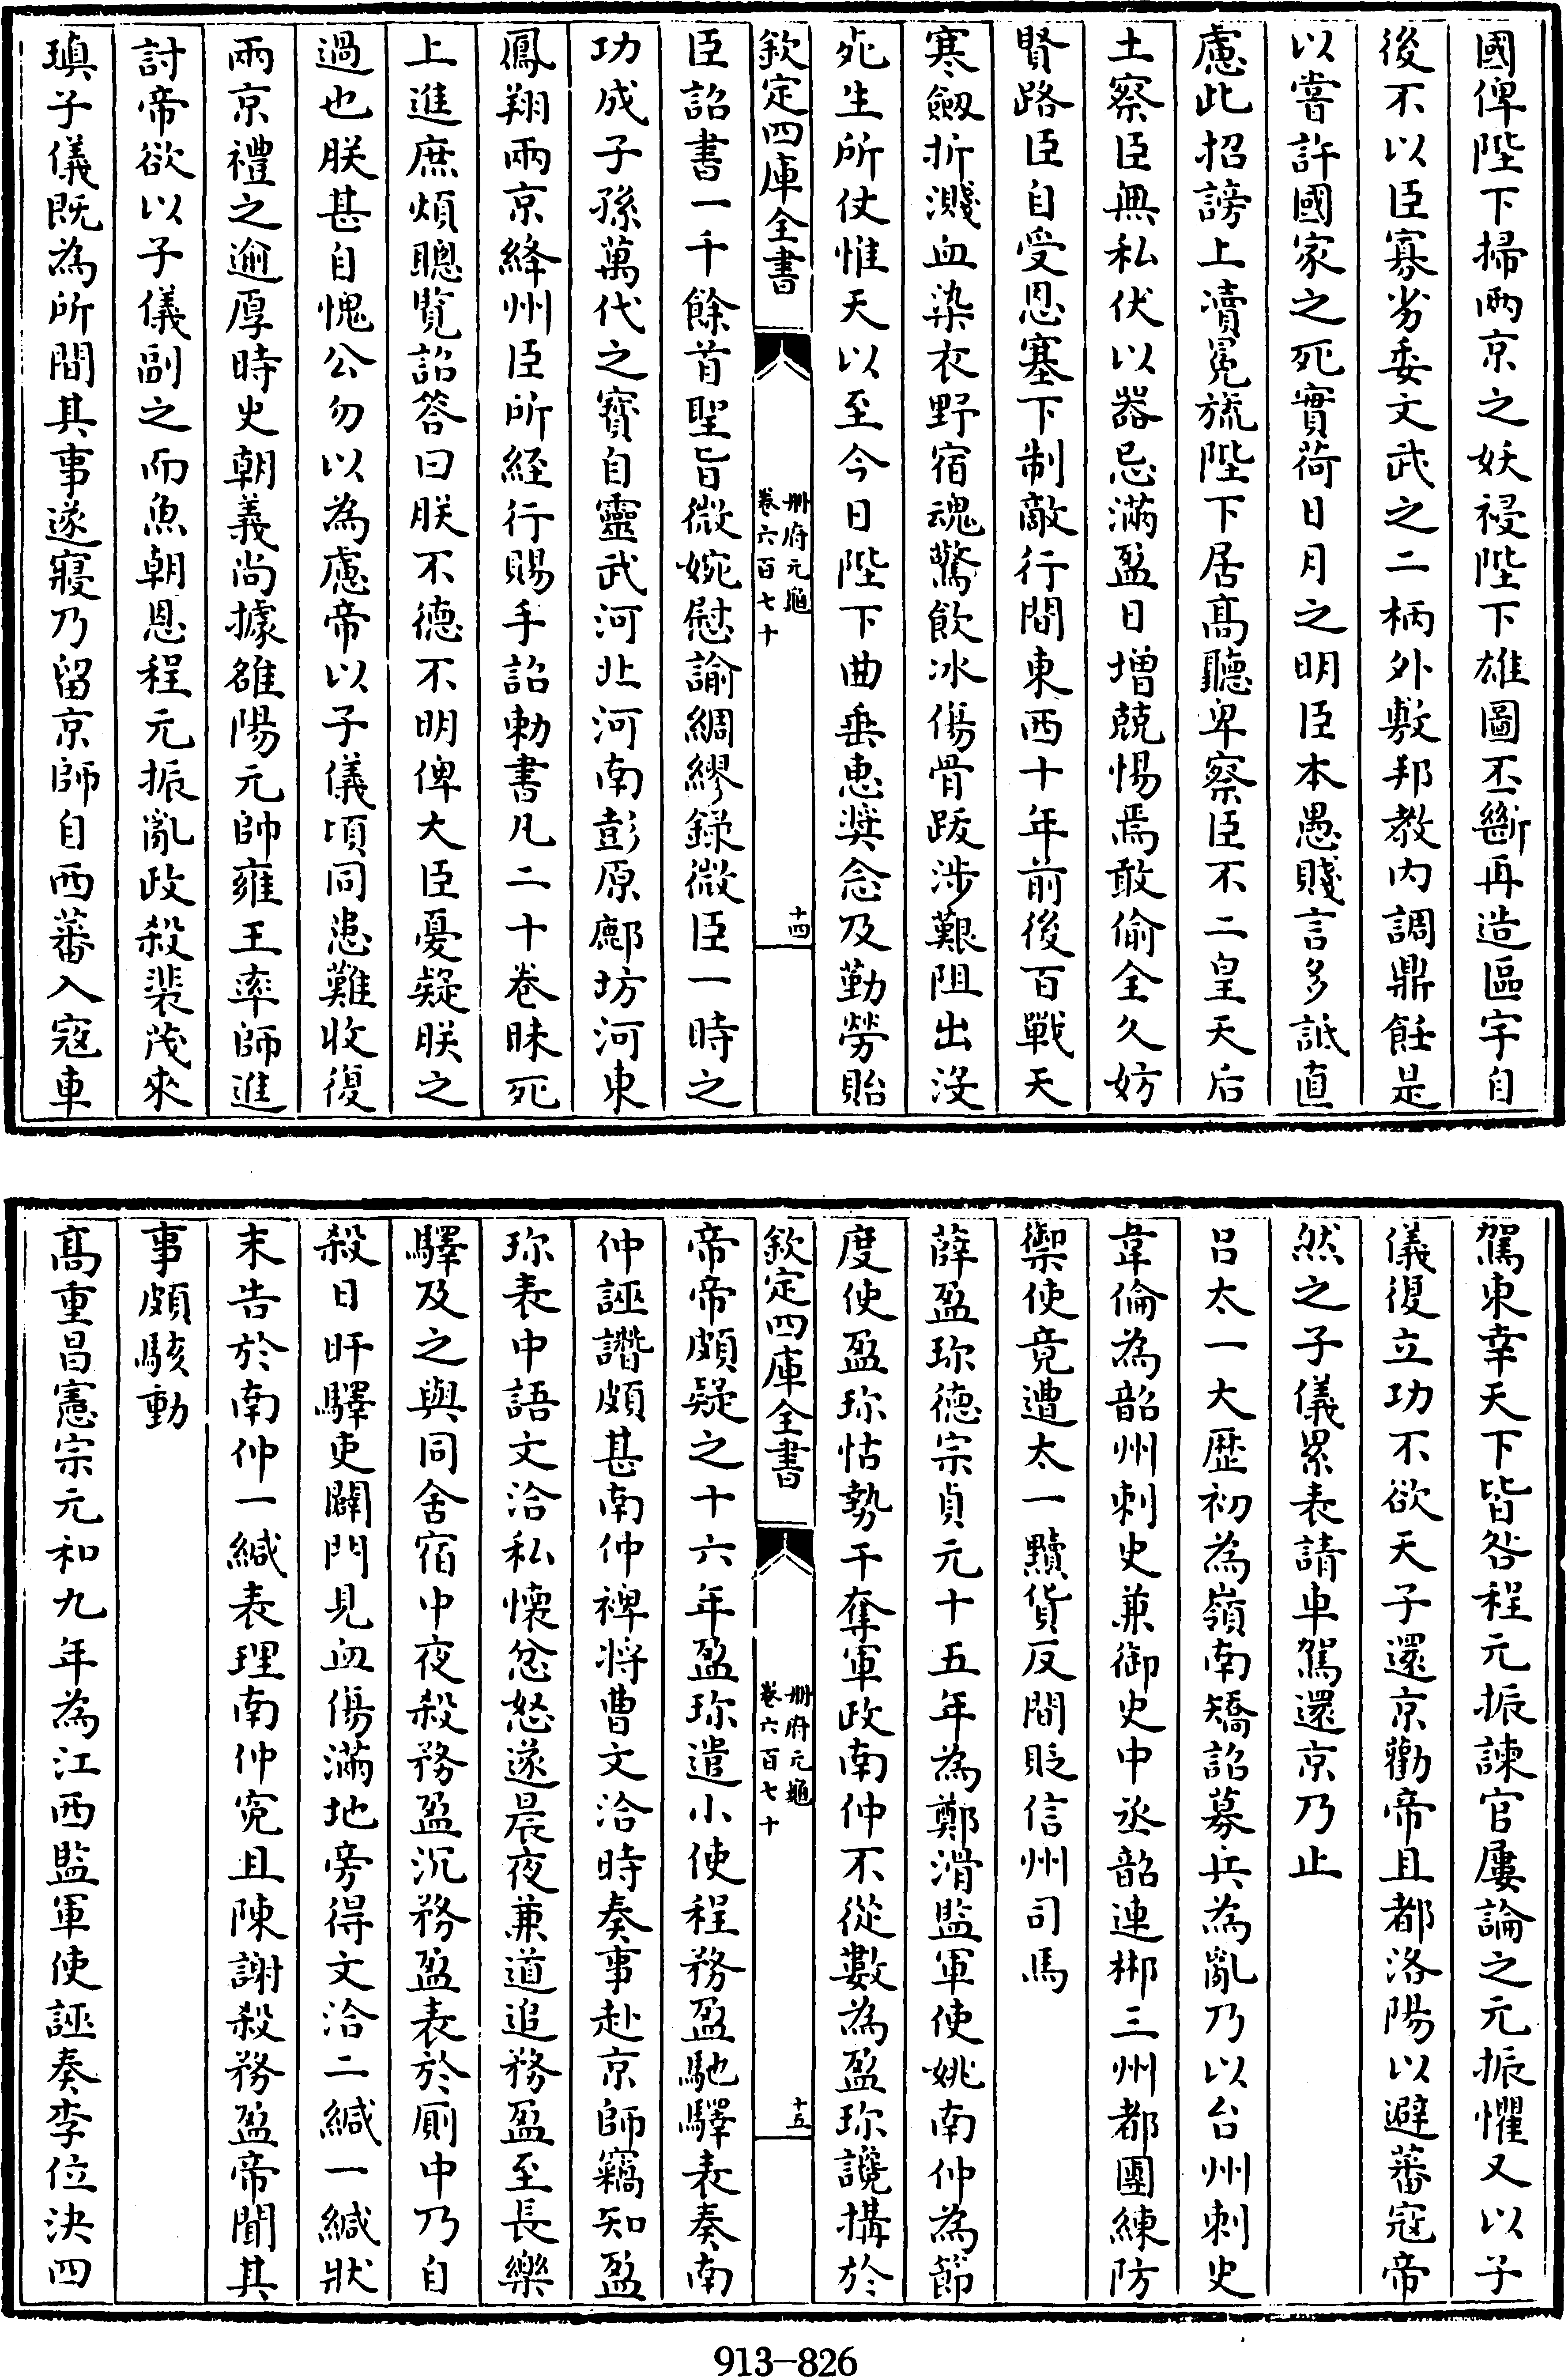 國俾陛下掃兩京之妖祲陛下雄圖丕斷再造區宇自
後不以臣寡劣委文武之二柄外敷邦教内調鼎飪是
以嘗許國家之死實荷日月之明臣本愚賤言多詆直
慮此招謗上瀆冕旒陛下居髙聽卑察臣不二皇天后
土察臣無私伏以器忌滿盈日增兢惕焉敢偷全久妨
賢路臣自受恩塞下制敵行間東西十年前後百戰天
寒劔折濺血染衣野宿魂驚飲冰傷骨跋涉艱阻出沒
死生所仗惟天以至今日陛下曲垂惠奨念及勤勞貽
欽定四庫全書 冊府元龜 卷六百七十 十四
臣詔書一千餘首聖旨微婉慰諭綢繆錄微臣一時之
功成子孫萬代之寳自靈武河北河南彭原鄜坊河東
鳳翔兩京絳州臣所經行賜手詔勅書凡二十卷昧死
上進庶煩聰覧詔答曰朕不德不明俾大臣憂疑朕之
過也朕甚自愧公勿以為慮帝以子儀頃同患難收復
兩京禮之逾厚時史朝義尚據雒陽元帥雍王率師進
討帝欲以子儀副之而魚朝恩程元振亂政殺裴茂來
瑱子儀既為所間其事遂寢乃留京師自西蕃入宼車
駕東幸天下皆咎程元振諫官屢論之元振懼又以子
儀復立功不欲天子還京勸帝且都洛陽以避蕃寇帝
然之子儀累表請車駕還京乃止
吕太一大歴初為嶺南矯詔募兵為亂乃以台州刺史
韋倫為韶州刺史兼御史中丞韶連郴三州都團練防
禦使竟遭太一黷貨反間貶信州司馬
薛盈珎德宗貞元十五年為鄭滑監軍使姚南仲為節
度使盈珎怙勢干奪軍政南仲不從數為盈珎讒搆於
欽定四庫全書 冊府元龜 卷六百七十 十五
帝帝頗疑之十六年盈珎遣小使程務盈馳驛表奏南
仲誣譖頗甚南仲裨將曹文洽時奏事赴京師竊知盈
珎表中語文洽私懐忿怒遂晨夜兼道追務盈至長樂
驛及之與同舍宿中夜殺務盈沉務盈表於厠中乃自
殺日旰驛吏闢門見血傷滿地旁得文洽二緘一緘狀
末告於南仲一緘表理南仲寃且陳謝殺務盈帝聞其
事頗駭動
髙重昌憲宗元和九年為江西監軍使誣奏李位決四
913-826